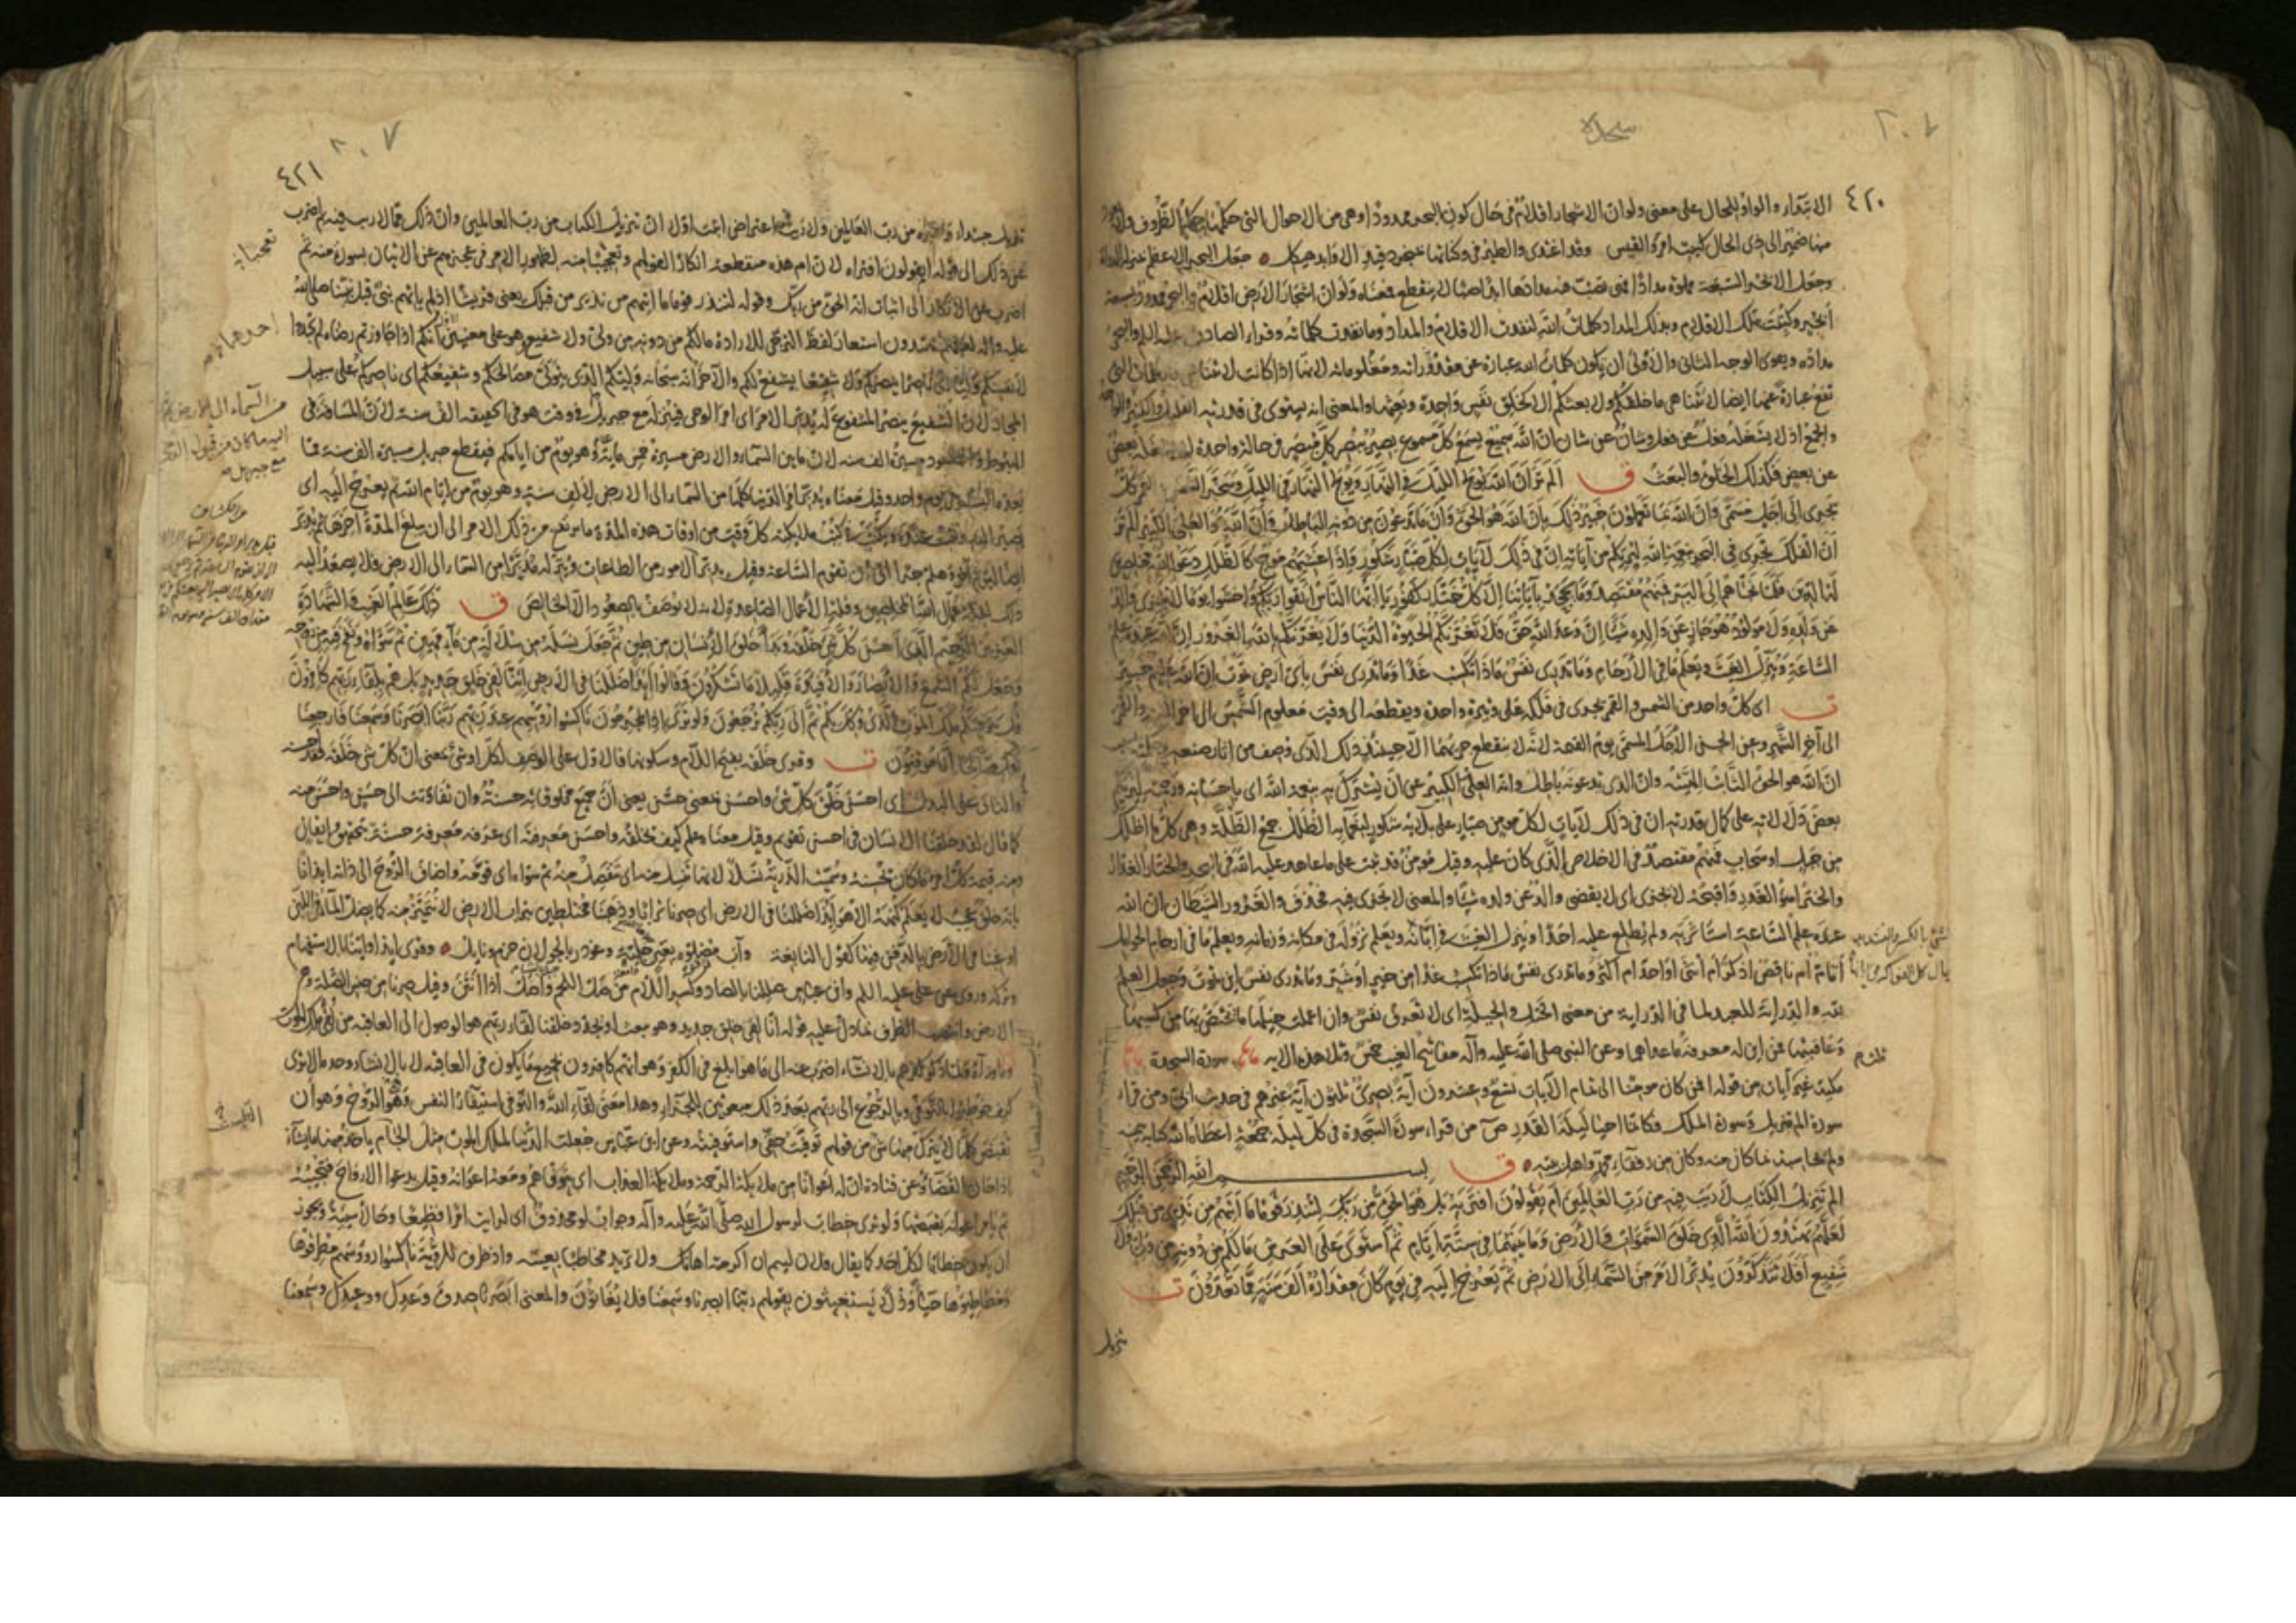 سجدة
٤٢٠
الابتداء والواو للحال على معنى ولو ان الاشجار اقلام في حال كون البحر ممدودا وهي من الاحوال التي حكمها حكم الظروف
ضمير الى ذي الحال كبيت امرؤ القيس وقد اغتدي والطير في وكناتها بمنجرد قيد الاوابد هيكل جعل البحر الاعظم
وجعل الابحر السبعة مملوة مدادا فهي تصب فيه مدادها ابدا صبا لا ينقطع فمعناه ولو ان اشجار الارض اقلام والبحر ممدود بسبعة
ابحر وكتبت بتلك الاقلام وبذلك المداد كلمات الله لنفدت الاقلام والمداد وما نفدت كلماته وقراءة الصادق عليه السلام والبحر
مداده ويقوي الوجه الثاني والاولى ان يكون كلمات الله عبارة عن مقدوراته ومعلوماته لانها اذا كانت لا تتناهى
تقع عبارة عنها ايضا لا تتناهى ما خلقكم ولا بعثكم الا كخلق نفس واحدة وبعثها والمعنى انه يستوي في قدرته القليل والكثير والواحد
والجمع اذ لا يشغله فعل عن فعل وشان عن شان ان الله سميع يسمع كل مسموع بصير يبصر كل مبصر في حالة واحدة لا يشغله بعض
عن بعض فكذلك الخلق والبعث ق الم تر ان الله يولج الليل في النهار ويولج النهار في الليل وسخر الشمس والقمر كل
يجري الى اجل مسمى وان الله بما تعملون خبير ذلك بان الله هو الحق وان ما تدعون من دونه الباطل وان الله هو العلي الكبير الم تر
ان الفلك تجري في البحر بنعمة الله ليريكم من آياته ان في ذلك لآيات لكل صبار شكور واذا غشيهم موج كالظلل دعوا الله مخلصين
له الدين فلما نجاهم الى البر فمنهم مقتصد وما يجحد بآياتنا الا كل ختار كفور يا ايها الناس اتقوا ربكم واخشوا يوما لا يجزي والد
عن ولده ولا مولود هو جاز عن والده شيئا ان وعد الله حق فلا تغرنكم الحيوة الدنيا ولا يغرنكم بالله الغرور ان الله عنده علم
الساعة وينزل الغيث ويعلم ما في الارحام وما تدري نفس ماذا تكسب غدا وما تدري نفس باي ارض تموت ان الله عليم خبير
ت اي كل واحد من الشمس والقمر يجري في فلكه على وتيرة واحدة ويقطعه الى وقت معلوم الشمس الى آخر السنة والقمر
الى آخر الشهر وعن الحسن الاجل المسمى يوم القيمة لانه لا ينقطع جريهما الا حينئذ ذلك الذي وصف من آثار صنعه
ان الله هو الحق الثابت الهيته وان الذي تدعونه باطل وان الله العلي الكبير عن ان يشرك به بنعمة الله اي باحسانه ورحمته ليريكم
بعض دلالاته على كمال قدرته ان في ذلك لآيات لكل مومن صبار على بلائه شكور لنعمائه الظلل جمع الظلة وهي كل ما اظلك
من جبل او سحاب فمنهم مقتصد في الاخلاص الذي كان عليه وقيل مومن قد ثبت على ما عاهد عليه الله في البحر والختار الغدار
والختر اسوأ الغدر واقبحه لا يجزي اي لا يقضي والد عن ولده شيئا والمعنى لا يجزي فيه فحذف والغرور الشيطان ان الله
عنده علم الساعة استاثر به ولم يطلع عليه احدا وينزل الغيث في ابانه ويعلم نزوله في مكانه وزمانه ويعلم ما في ارحام الحوامل
أتام ام ناقص اذكر ام انثى اواحد ام اكثر وما تدري نفس ماذا تكسب غدا من خير او شر وما تدري نفس اين تموت وجعل العلم
لله والدراية للعبد لما في الدراية من معنى الختل والحيلة اي لا تعرف نفس وان اعملت حيلها ما يختص بها من كسبها
وعاقبتها فمن اين له معرفة ما عداهما وعن النبي صلى الله عليه وآله مفاتيح الغيب خمس وتلا هذه الآية سورة السجدة
مكية غير آيات من قوله افمن كان مومنا الى تمام الآيات تسع وعشرون آية بصري ثلثون آية غيرهم في حديث ابي ومن قرأ
سورة الم تنزيل وسورة الملك فكانما احيا ليلة القدر ص من قرأ سورة السجدة في كل ليلة جمعة اعطاه الله كتابه بيمينه
ولم يحاسبه بما كان منه وكان من رفقاء محمد واهل بيته ق بسم الله الرحمن الرحيم
الم تنزيل الكتاب لا ريب فيه من رب العالمين ام يقولون افتريه بل هو الحق من ربك لتنذر قوما ما اتيهم من نذير من قبلك
لعلهم يهتدون الله الذي خلق السموات والارض وما بينهما في ستة ايام ثم استوى على العرش ما لكم من دونه من ولي ولا
شفيع افلا تتذكرون يدبر الامر من السماء الى الارض ثم يعرج اليه في يوم كان مقداره الف سنة مما تعدون ت
تنزيل
٤٢١
تنزيل مبتداء وخبره من رب العالمين ولا ريب فيه اعتراض اثبت اولا ان تنزيل الكتاب من رب العالمين وان ذلك مما لا ريب فيه ثم اضرب
عن ذلك الى قوله ام يقولون افتراه لان ام هذه منقطعة انكارا لقولهم وتعجيبا منه لظهور الامر في عجزهم عن الاتيان بسورة منه ثم
اضرب عن الانكار الى اثبات انه الحق من ربك وقوله لتنذر قوما ما اتيهم من نذير من قبلك يعني قريشا اذ لم ياتهم نبي قبل نبينا صلى الله
عليه وآله لعلهم يهتدون استعار لفظ الترجي للارادة ما لكم من دونه من ولي ولا شفيع هو على معنيين انكم اذا جاوزتم رضاه لم تجدوا
لانفسكم وليا اي ناصرا ينصركم ولا شفيعا يشفع لكم والآخر انه سبحانه وليكم الذي يتولى مصالحكم وشفيعكم اي ناصركم على سبيل
المجاز لان الشفيع ينصر المشفوع له يدبر الامر اي امر الوحي فينزله مع جبريل في وقت هو في الحقيقة الف سنة لان المسافة في
الهبوط والصعود مسيرة الف سنة لان ما بين السماء والارض مسيرة خمس مائة وهو يوم من ايامكم فيقطع جبريل مسيرة الف سنة مما
يعده البشر في يوم واحد وقيل معناه يدبر امر الدنيا كلها من السماء الى الارض لالف سنة وهو يوم من ايام الله ثم يعرج اليه اي
يصير اليه ويثبت عنده ويكتب في كتب ملائكته كل وقت من اوقات هذه المدة ما يرتفع من ذلك الامر الى ان يبلغ المدة آخرها ثم يدبر
ايضا ليوم آخر وهلم جرا الى ان تقوم الساعة وقيل يدبر الامور من الطاعات وينزله مدبرا من السماء الى الارض فلا يصعد اليه
ذلك لقلة عمال الله المخلصين وقلة الاعمال الصاعدة لانه لا يوصف بالصعود الا الخالص ق ذلك عالم الغيب والشهادة
العزيز الرحيم الذي احسن كل شيء خلقه وبدأ خلق الانسان من طين ثم جعل نسله من سلالة من ماء مهين ثم سواه ونفخ فيه من روحه
وجعل لكم السمع والابصار والافئدة قليلا ما تشكرون وقالوا أإذا ضللنا في الارض أإنا لفي خلق جديد بل هم بلقاء ربهم كافرون
قل يتوفيكم ملك الموت الذي وكل بكم ثم الى ربكم ترجعون ولو ترى اذ المجرمون ناكسوا رؤسهم عند ربهم ربنا ابصرنا وسمعنا فارجعنا
نعمل صالحا انا موقنون ت وقرئ خلقه بفتح اللام وسكونها فالاول على الوصف لكل او شيء بمعنى ان كل شيء خلقه فقد احسنه
والثاني على البدل اي احسن خلق كل شيء واحسن بمعنى حسن يعني ان جميع مخلوقاته حسنة وان تفاوتت الى حسن واحسن منه
كما قال لقد خلقنا الانسان في احسن تقويم وقيل معناه علم كيف يخلقه واحسن معرفته اي عرفه معرفة حسنة بتحقيق وايقان
ومنه قيمة كل امرء ما كان يحسنه وسميت الذرية نسلا لانها تنسل منه اي تنفصل منه ثم سواه اي قومه واضاف الروح الى ذاته ايذانا
بانه خلق عجيب لا يعلم كنهه الا هو أإذا ضللنا في الارض اي صرنا ترابا وذهبنا مختلطين بتراب الارض لا نتميز منه كما يضل الماء في اللبن
او غبنا في الارض بالدفن فيها كقول النابغة وآب مضلوه بعين جلية وغودر بالجولان حزم ونايل وقرئ أإذا وأإنا بالاستفهام
وتركه وروي عن علي عليه السلام وابن عباس صللنا بالصاد وكسر اللام من صل اللحم واصل اذا انتن وقيل صرنا من جنس الصلة وهي
الارض وانتصب الظرف بما دل عليه قوله انا لفي خلق جديد وهو نبعث او يجدد خلقنا لقاء ربهم هو الوصول الى العاقبة من تلقي ملك الموت
وما وراءه فلما ذكر كفرهم بالانشاء اضرب عنه الى ما هو ابلغ في الكفر وهو انهم كافرون بجميع ما يكون في العاقبة لا بالانشاء وحده الا ترى
كيف خوطبوا بالتوفي وبالرجوع الى ربهم بعد ذلك مبعوثين للجزاء وهذا معنى لقاء الله والتوفي استيفاء النفس وهو الروح وهو ان
تقبض كلها لا يترك منها شيء من قولهم توفيت حقي واستوفيته وعن ابن عباس جعلت الدنيا لملك الموت مثل الجام ياخذ منها ما يشاء
اذا حان القضاء وعن قتادة ان له اعوانا من ملائكة الرحمة وملائكة العذاب اي يتوفاهم ومعه اعوانه وقيل يدعو الارواح فتجيبه
ثم يامر اعوانه بقبضها ولو ترى خطاب لرسول الله صلى الله عليه وآله وجواب لو محذوف اي لرايت امرا فظيعا وحالا سيئة ويجوز
ان يكون خطابا لكل احد كما يقال فلان لئيم ان اكرمته اهانك ولا تريد مخاطبا بعينه واذ ظرف للرؤية ناكسوا رؤسهم مطرقوها
ومطاطئوها حياء وذلا يستغيثون بقولهم ربنا ابصرنا وسمعنا فلا يغاثون والمعنى ابصرنا صدق وعدك ووعيدك وسمعنا